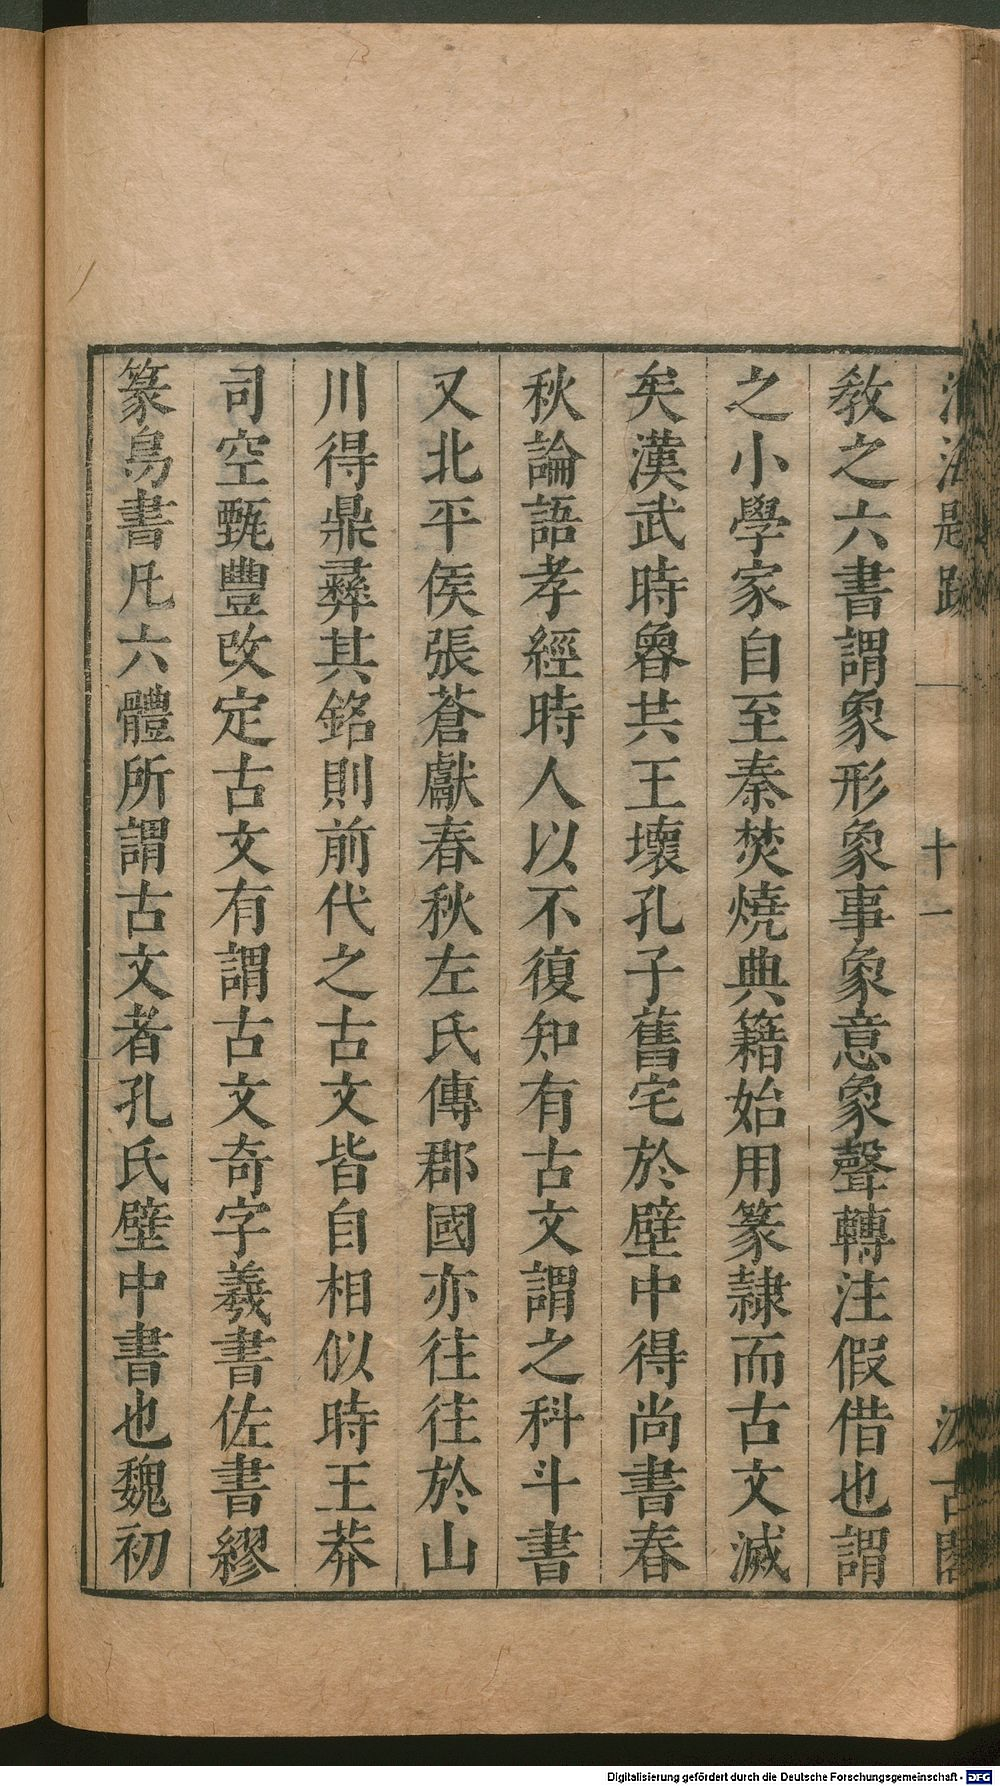 淮海題跋 十一 汲古閣
敎之六書謂象形象事象意象聲轉注假借也謂
之小學家自至秦焚燒典籍始用篆隷而古文滅
矣漢武時魯共王壞孔子舊宅於壁中得尚書春
秋論語孝經時人以不復知有古文謂之科斗書
又北平侯張蒼獻春秋左氏傳郡國亦往往於山
川得鼎彞其銘則前代之古文皆自相似時王莽
司空甄豐改定古文有謂古文奇字義書佐書繆
篆鳥書凡六體所謂古文者孔氏壁中書也魏初
Digitalisierung gefördert durch die Deutsche Forschungsgemeinschaft - DFG